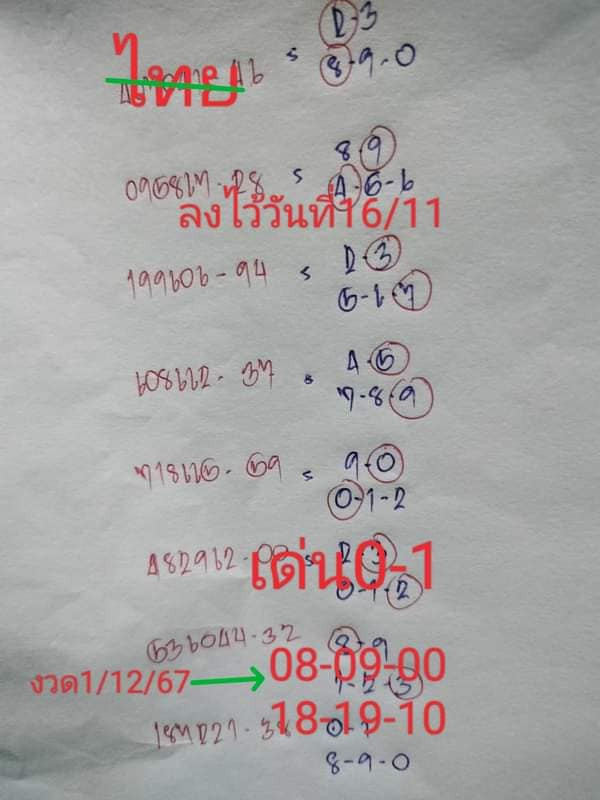 2-3
ไทย
8-9-0
8-9
095867-28 s 4-5-6
ลงไว้วันที่16/11
2-3
199606-94 s 5-6-7
4-5
608662-37 7-8-9
9-0
718665-59 s 0-1-2
482962-00 s 2-3
เด่น0-1
0-1-2
536044-32 8-9
งวด1/12/67 08-09-00
1-2-3
18-19-10
0-1
8-9-0